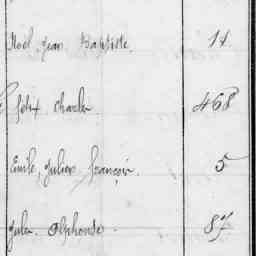 Noël, Jean Baptiste. 14.
Félix Charles 468
Emile, Julien, François. 5
Jules Alphonse. 87